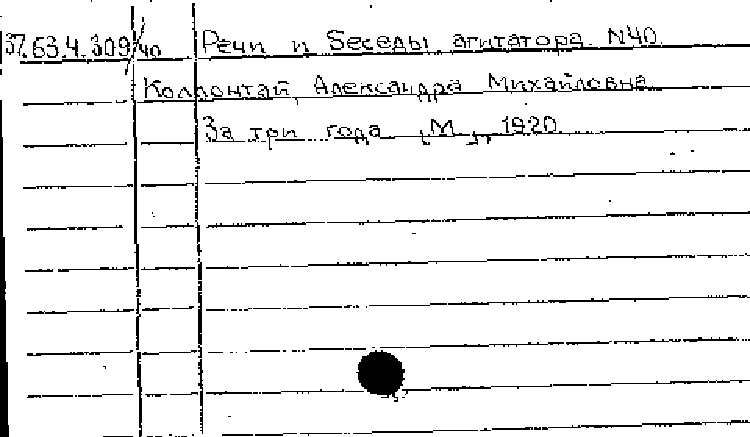 37.63.4.309/40 Речи и беседы агитатора N40
Коллонтай, Александра Михайловна
За три года [М.], 1920